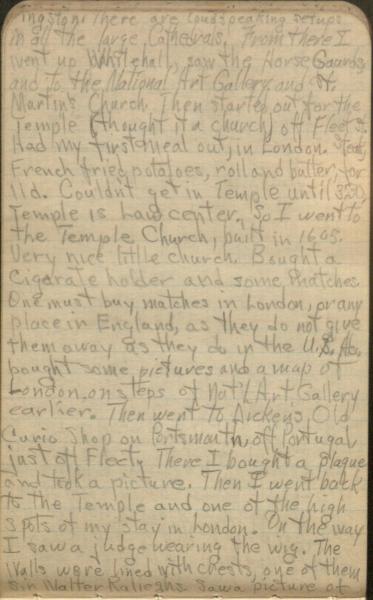 ingston. There are loudspeaking setups
in all the large Cathedrals. From there I
went up Whitehall, saw the Horse Guards,
and to the National Art Gallery and St.
Martin's Church. Then started out for the
Temple (thought it a church) off Fleet St.
Had my first meal out, in London. Steak,
French fried potatoes, roll and butter, for
11d. Couldn't get in Temple until 3:30.
Temple is Law center. So I went to
the Temple Church, built in 1605.
Very nice little church. Bought a
Cigarate holder and some matches.
One must buy matches in London, or any
place in England, as they do not give
them away as they do in the U.S. Also
bought some pictures and a map of
London on steps of Nat'l Art Gallery
earlier. Then went to Dickens Old
Curio Shop on Portsmouth, off Portugal
just off Fleet. There I bought a plaque
and took a picture. Then I went back
to the Temple and one of the high
spots of my stay in London. On the way
I saw a judge wearing the wig. The
Walls were lined with chests, one of them
Sir Walter Raleighs. Saw a picture of